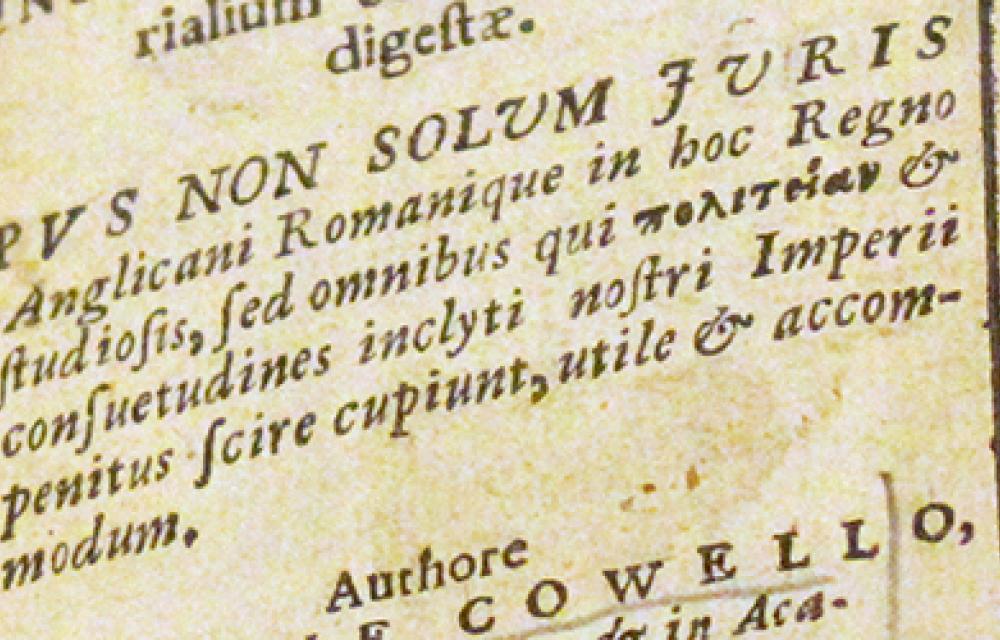 rialium
digeſtæ.
PVS NON SOLUM JURIS
Anglicani Romanique in hoc Regno
ſtudioſis, ſed omnibus qui πολιτείαν &
conſuetudines inclyti noſtri Imperii
penitus ſcire cupiunt, utile & accom-
modum.
Authore
COWELLO,
in Aca-